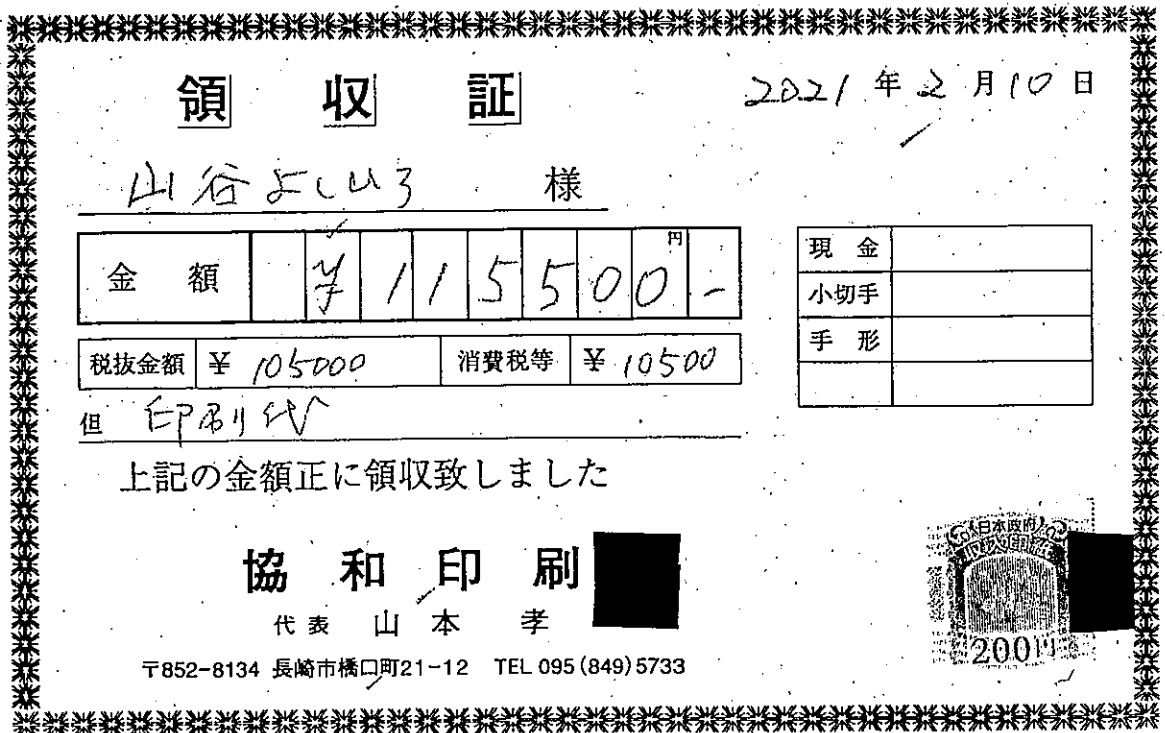 領収証
2021年2月10日
山谷よしひろ 様
金額 ¥115500円-
税抜金額 ¥ 105000 消費税等 ¥ 10500
但 印刷代
上記の金額正に領収致しました
現金
小切手
手形
協和印刷
代表 山本 孝
〒852-8134 長崎市橋口町21-12 TEL 095(849)5733
日本政府
収入印紙
200円